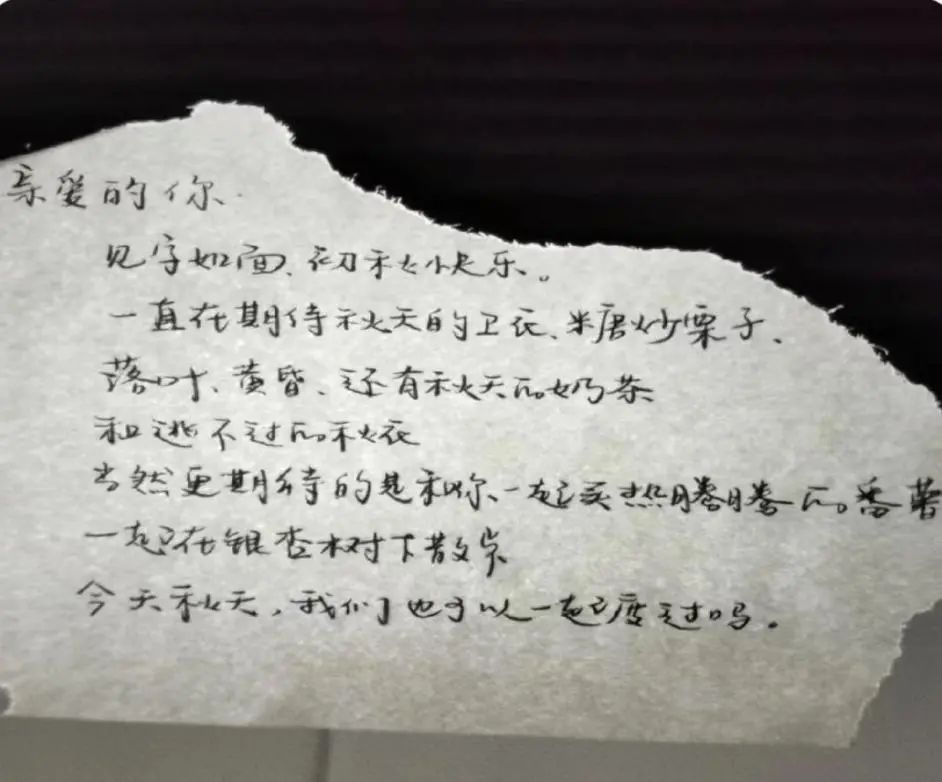 亲爱的你.
见字如面、初秋快乐。
一直在期待秋天的卫衣、糖炒栗子、
落叶、黄昏、还有秋天的奶茶
和逃不过的秋衣
当然更期待的是和你一起买热腾腾的番薯
一起在银杏树下散步
今天秋天，我们也可以一起度过吗。